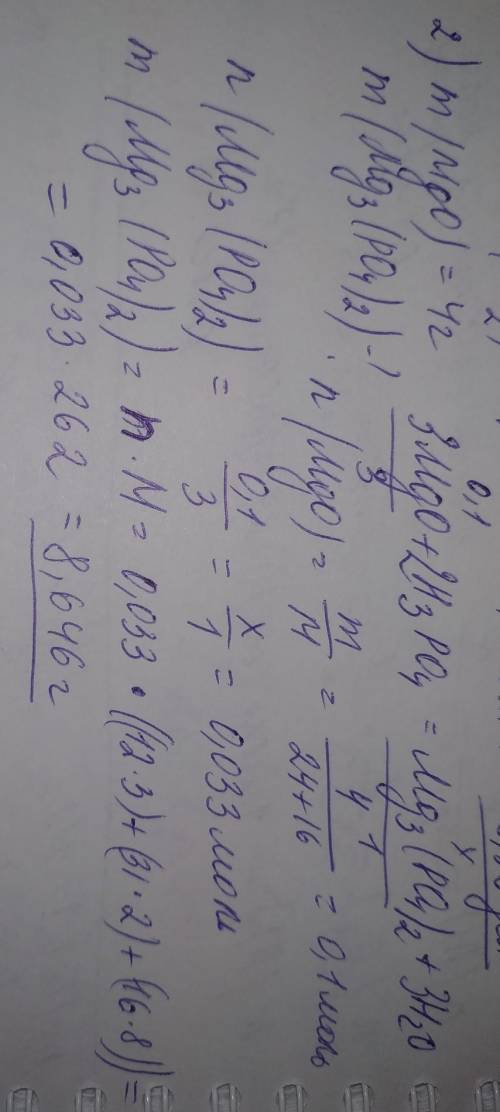 2) m(MgO) = 4г
0,1 x
3MgO + 2H3PO4 = Mg3(PO4)2 + 3H2O
3 1
m(Mg3(PO4)2) - ?
n(MgO) = m/M = 4/(24+16) = 0,1 моль
n(Mg3(PO4)2) = 0,1/3 = x/1 = 0,033 моль
m(Mg3(PO4)2) = n · M = 0,033 · ((12·3)+(31·2)+(16·8)) =
= 0,033 · 262 = 8,646г